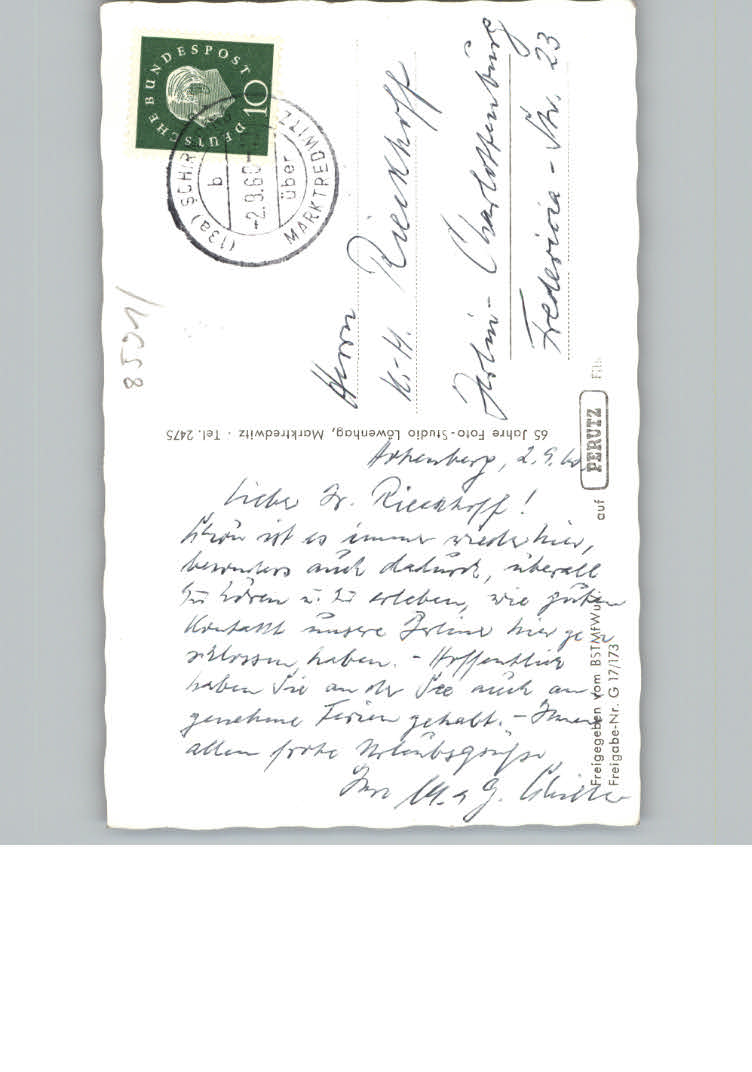 DEUTSCHE BUNDESPOST
10
(13a) SCHIR
b
-2.9.60
über
MARKTREDWITZ
8591/
Herrn
K-H. Rieckhoff
Berlin-Charlottenburg
Fredericia-Str. 23
65 Jahre Foto-Studio Löwenhag, Marktredwitz · Tel. 2475
auf PERUTZ Film
Freigegeben vom BSTMfWuV
Freigabe-Nr. G 17/173
Hohenberg, 2.9.60
Lieber Hr. Rieckhoff!
Schön ist es immer wieder hier,
besonders auch dadurch, überall
zu hören u. zu erleben, wie guten
Kontakt unsere Berliner hier ge
schlossen haben. - Hoffentlich
haben Sie an der See auch an
genehme Ferien gehabt. - Ihnen
allen frohe Urlaubsgrüße
Ihre M. u G.